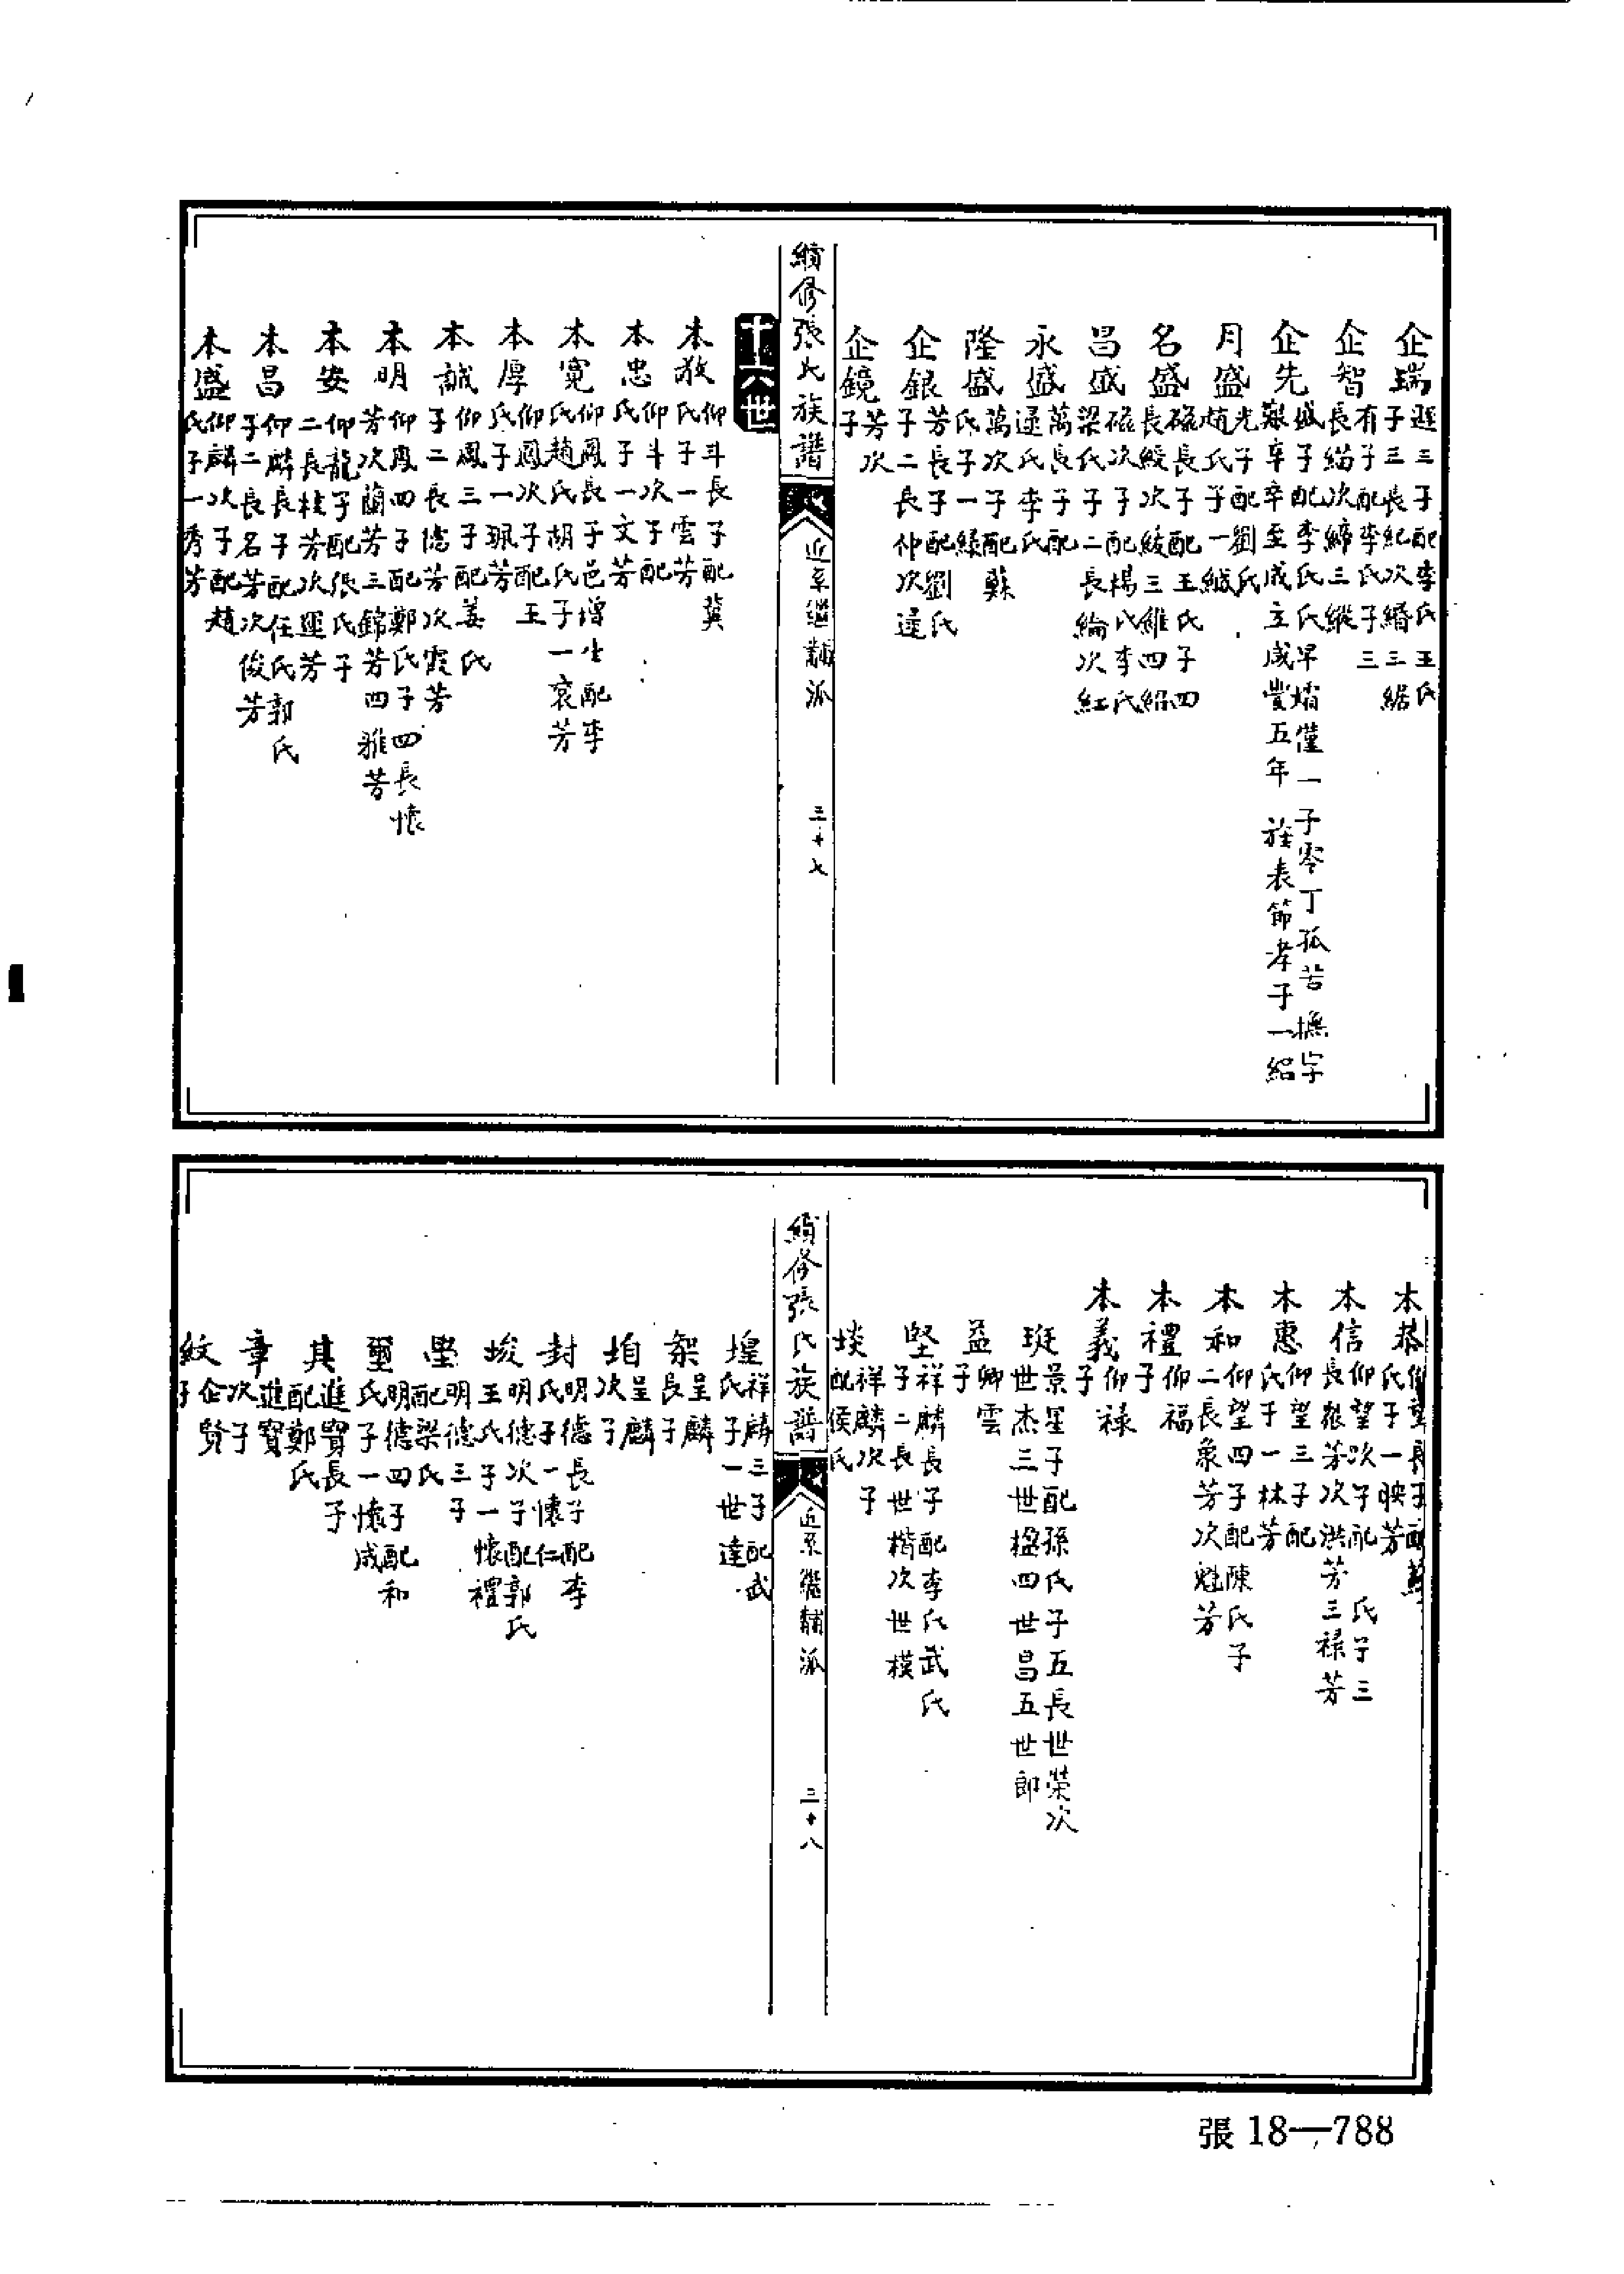 企瑞 遲三子配李氏王氏
子三長紀次綹三綛
企智 有子配李氏子三
長緢次締三縱
企先 盛子配李氏氏早孀僅一子零丁孤苦撫字
艱辛卒至成立咸豐五年 旌表節孝子一紹
月盛 光子配劉氏
趙氏子一緎
名盛 磁長子配王氏子四
長綬次紱三維四紹
昌盛 磁次子配楊氏李氏
梁氏子二長綸次紅
永盛 萬長子配
逯氏李氏
隆盛 萬次子配蘇
氏子一綠
企銀 芳長子配劉氏
子二長仲次達
企鏡 芳次
子
續修張氏族譜
近系繼輔派
三十七
十六世
本敬 仰斗長子配冀
氏子一雲芳
本忠 仰斗次子配
氏子一文芳
本寬 仰鳳長子邑增生配李
氏趙氏胡氏子一袞芳
本厚 仰鳳次子配王
氏子一珮芳
本誠 仰鳳三子配姜氏
子二長德芳次霞芳
本明 仰鳳四子配鄭氏子四長懷
芳次蘭芳三錦芳四雅芳
本安 仰龍子配張氏子
二長桂芳次運芳
本昌 仰麟長子配任氏郭氏
子二長名芳次俊芳
本盛 仰麟次子配趙
氏子一秀芳
本恭 仰望長子配蘇
氏子一映芳
本信 仰望次子配 氏子三
長裉芳次洪芳三祿芳
本惠 仰望三子配
氏子一林芳
本和 仰望四子配陳氏子
二長象芳次魁芳
本禮 仰福
子
本義 仰祿
子
珽 景星子配孫氏子五長世榮次
世杰三世楹四世昌五世郎
益 卿雲
子
堅 祥麟長子配李氏武氏
子二長世楷次世模
埮 祥麟次子
配侯氏
續修張氏族譜
近系繼輔派
三十八
堭 祥麟三子配武
氏子一世達
架 呈麟
長子
垍 呈麟
次子
封 明德長子配李
氏子一懷仁
埈 明德次子配郭氏
王氏子一懷禮
壆 明德三子
配梁氏
璽 明德四子配和
氏子一懷成
其 進寶長子
配鄭氏
章 進寶
次子
紋 企賢
子
張 18—788